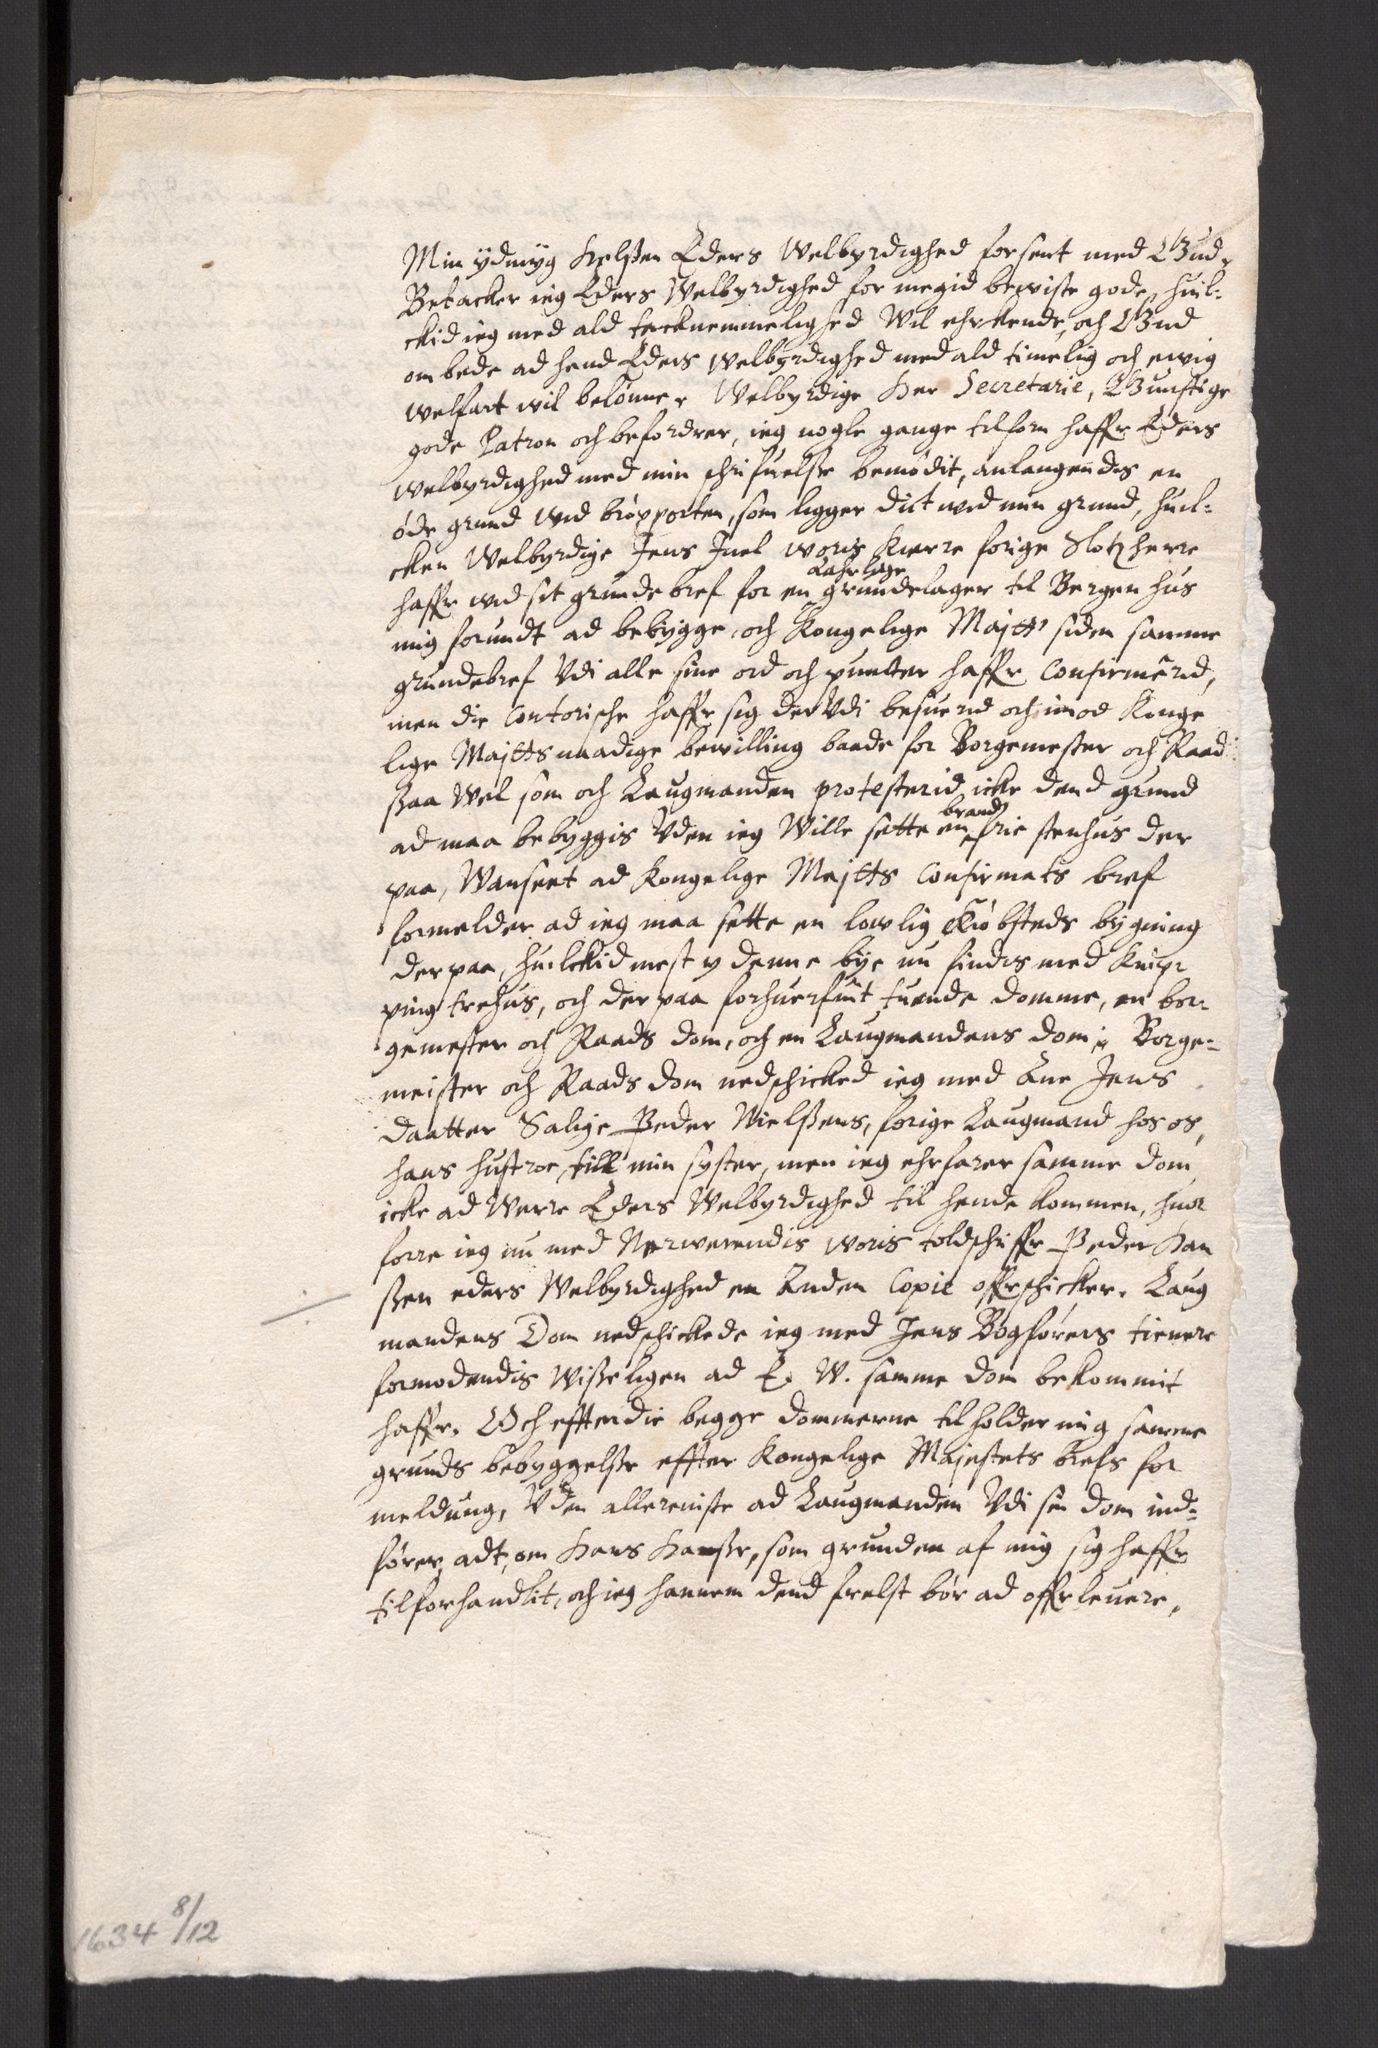 Min ydmyg Helsen Eders Welbyrdighed forsent med Gud,
Betacker ieg Eders Welbyrdighed for megid bewiste gode, huil-
ckid ieg med ald tacknemmelighed Wil ehrkende, och Gud
ombede ad hand Eders Welbyrdighed med ald timelig och ewig
welfart wil belønne, Welbyrdige Her Secretarie, Gunstige
gode Patron och befordrer, ieg nogle gange tilforn haffr Eders
welbyrdighed med min schrifuelse bemødit, anlangendis en
øde grund wed broporten, som ligger dict wed min grund, huil-
cken Welbyrdige Jens Juel woris kierre forige Slotzherre
haffr wed sit grundebref for en Aahrlige grundelager til Bergenhus
mig forundt ad bebygge, och Kongelige Majtt siden samme
grundebref Vdi alle sine ord och puncter haffr Confirmerid,
men die Contorische haffr sig der Vdi besuerid och imod Konge
lige Majtts naadige bewilling baade for Borgemester och Raad
saa Wel som och Laugmanden protesterid icke dend grund
ad maa bebyggis Vden ieg Wille sette en brand frie stenhus der
paa, Wanseet ad Kongelige Majtts Confirmats bref
formelder ad ieg maa sette en lowlig Kiøbsteds bygning
derpaa, huilckid mest y denne bye nu findes med Knip
ping trehus, och derpaa forhuerfuit tuende domme, en bor-
gemester och Raads dom, och en Laugmandens dom, Borge-
meister och Raads dom nedschicked ieg med Ane Jens
daatter Salige Peder Nielsens, forige Laugmand hos os,
hans hustroe till min syster, men ieg ehrfarer samme dom
icke ad Were Eders Welbyrdighed til hende kommen, huor
forre ieg nu med Nerwerendis woris toldschriffr Peder Han
sen eders Welbyrdighed en Anden Copie offrschicker. Laug
mandens Dom nedschickede ieg med Jens Bogførers tienere
formodendis Wisseligen ad E. W. samme dom bekommit
haffr. Och efterdie begge dommerne tilholder mig samme
grunds bebyggelse effter Kongelige Majestets brefs for
meldung, Vden alleeniste ad Laugmanden Vdi sin dom ind-
fører, adt, om Hans Hansse, som grunden af mig sig haffr
tilforhandlit, och ieg hannem dend frelst bør ad offrleuere,
1634 8/12